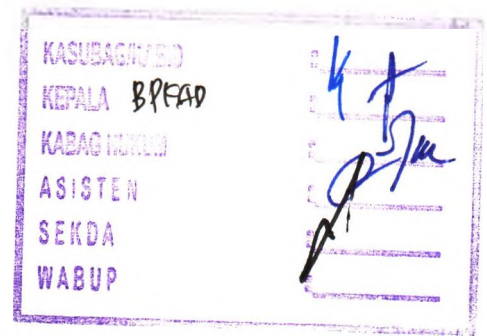 KASUBAG/KABID
KEPALA BPKAD
KABAG HUKUM
ASISTEN
SEKDA
WABUP